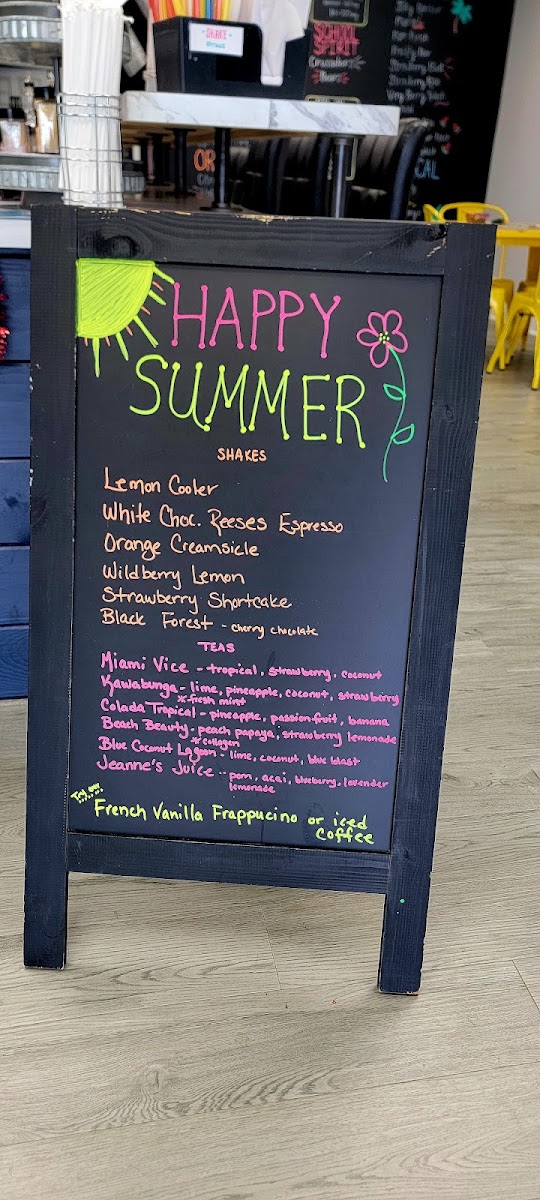 SHAKE
SCHOOL
SPIRIT
OR
HAPPY
SUMMER
SHAKES
Lemon Cooler
White Choc. Reeses Espresso
Orange Creamsicle
Wildberry Lemon
Strawberry Shortcake
Black Forest - cherry chocolate
TEAS
Miami Vice - tropical, strawberry, coconut
Kawabunga - lime, pineapple, coconut, strawberry
* fresh mint
Colada Tropical - pineapple, passionfruit, banana
Beach Beauty - peach papaya, strawberry lemonade
* collagen
Blue Coconut Lagoon - lime, coconut, blue blast
Jeanne's Juice - pom, acai, blueberry, lavender
lemonade
Try our
French Vanilla Frappucino or iced
Coffee